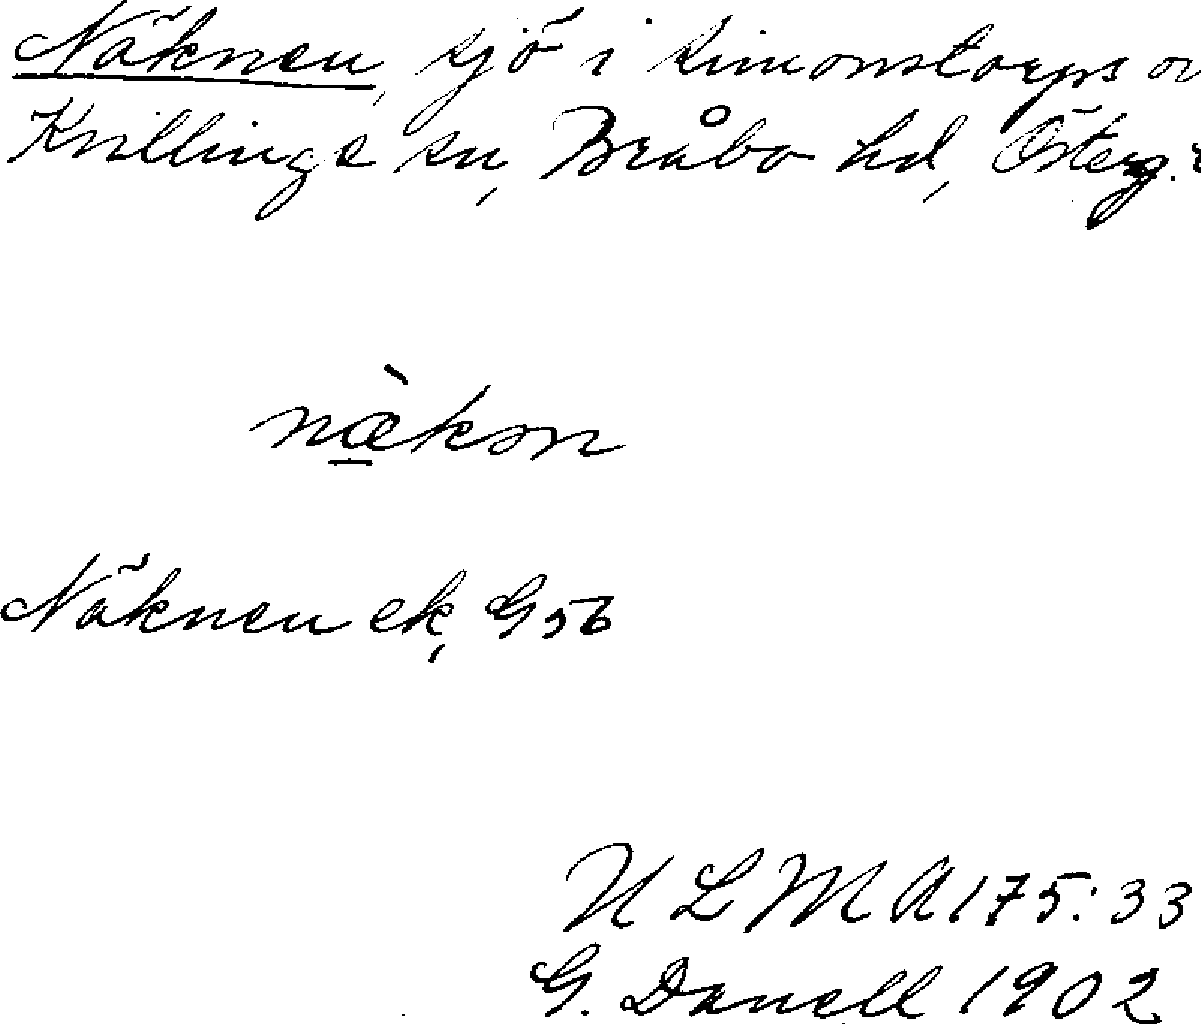 Näknen, sjö i Simonstorps o
Kvillinge sn, Bråbo hd, Österg.
næ̱̀kən
Näknen ek, G56
ULMA 175:33
G. Danell 1902